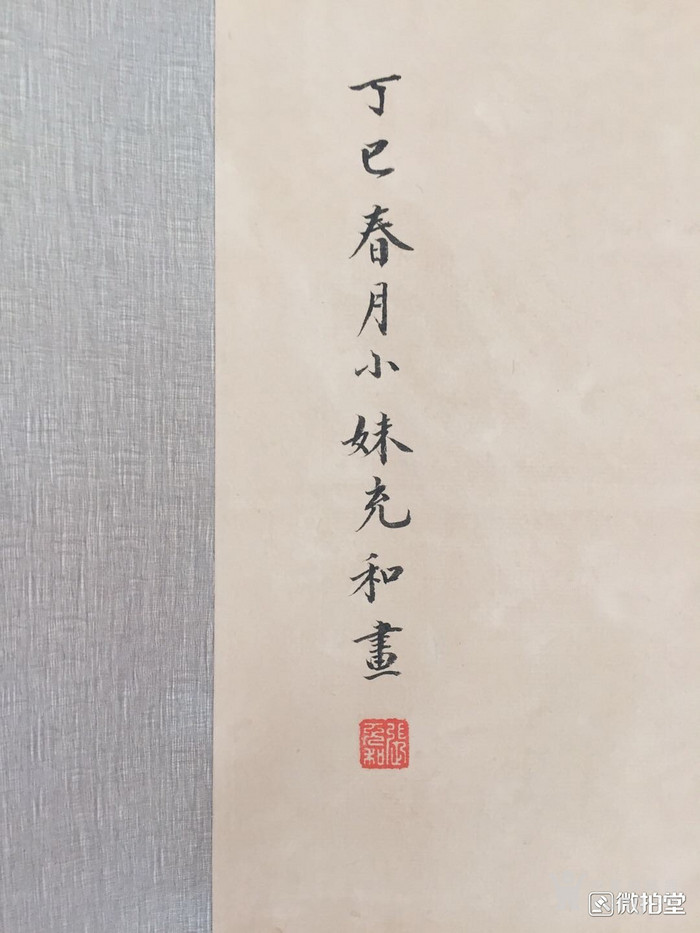 丁巳春月小妹充和畫
張充和
微拍堂